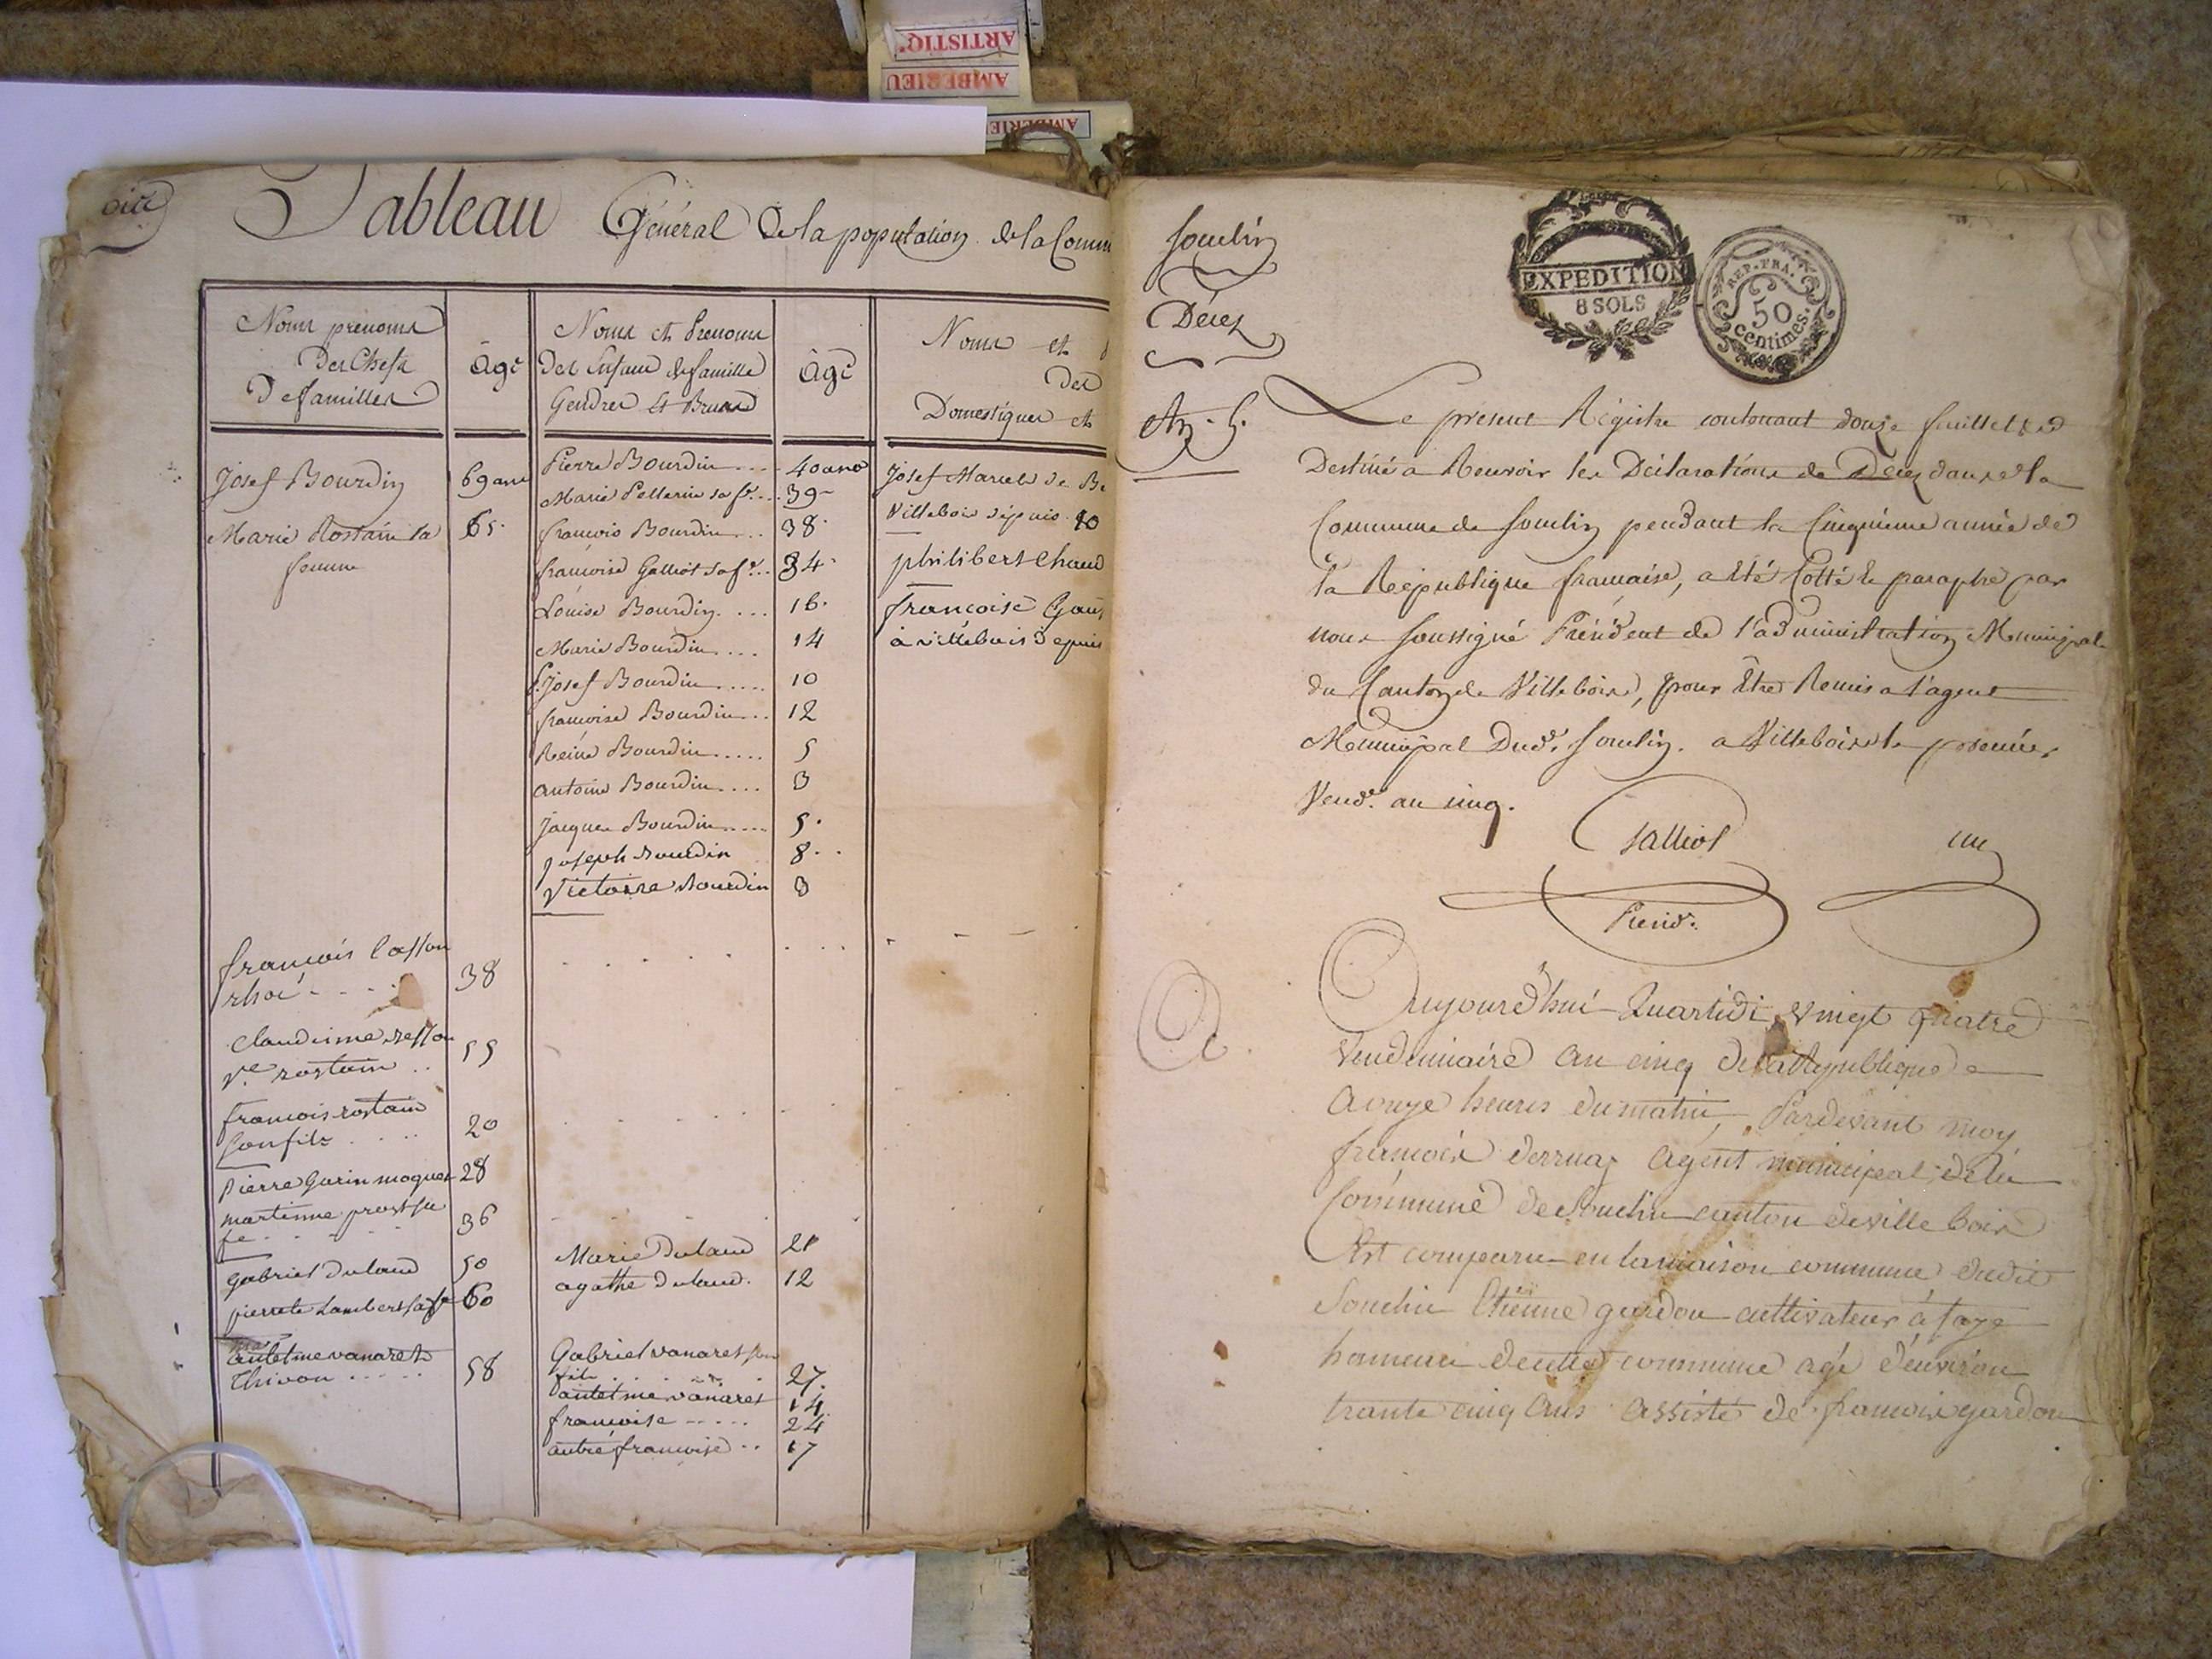 ARTISTIQ
AMBERIEU
AMBERIE
Tableau Général de la population de la Comm
Noms prenoms
Des Chefs
De familles
âge
Noms et Prenoms
Des Enfans de famille
Gendres et Brues
âge
Noms et
Des
Domestiques et
Josef Bourdin
69 ans
Marie Rostain sa
femme
65
Pierre Bourdin .... 40 ans
Marie Pellerin sa fe... 39
francois Bourdin... 38
francoise Galliot sa fe... 34
Louise Bourdin.... 16
Marie Bourdin.... 14
Josef Bourdin..... 10
francoise Bourdin... 12
Reine Bourdin..... 5
antoine Bourdin.... 3
Jacques Bourdin..... 5
Joseph Bourdin 8
Victoire Bourdin 3
Josef Marcel de
Villebois depuis 10
philibert Chaud
françoise
à villebois depuis
francois
38
Claudinne
ve rostain ..
55
francois rostain
son fils
20
pierre Gurin 28
martinne prost sa
fe
36
Gabriel Dulaud 50
pierrette Lambert sa fe 60
Marie Dulaud 21
agathe dulaud. 12
antelme vanaret
Thivon .....
58
Gabriel vanaret son
fils 27
antelme vanaret 14
francoise ..... 24
autre francoise .. 17
Souclin
Décez
An. 5.
EXPEDITION
8 SOLS
REP. FRA.
50
centimes.
Le present Régistre contenant douze feuillets
Destiné a Recevoir les Déclarations de Décez dans la
Commune de Souclin pendant la Cinquieme année de
la République francaise, a été Cotté & paraphé par
nous soussigné Président de l'administration Municipal
du Canton de Villebois, pour être Remis a l'agent
Municipal Dud. Souclin. a Villebois le premier
Vend.re an cinq.
Galliot
Presid.
Aujourd'hui Quartidi vingt quatre
Vendemiaire an cinq de la Republique
a onze heures du matin, Pardevant moy
francois derruaz agent municipal de la
Commune de Souclin canton de ville bois
Est comparu en la maison commune dudit
Souclin Etienne gardon cultivateur à faye
hameau de cette commune agé d'environ
trante cinq ans assisté de francois gardon